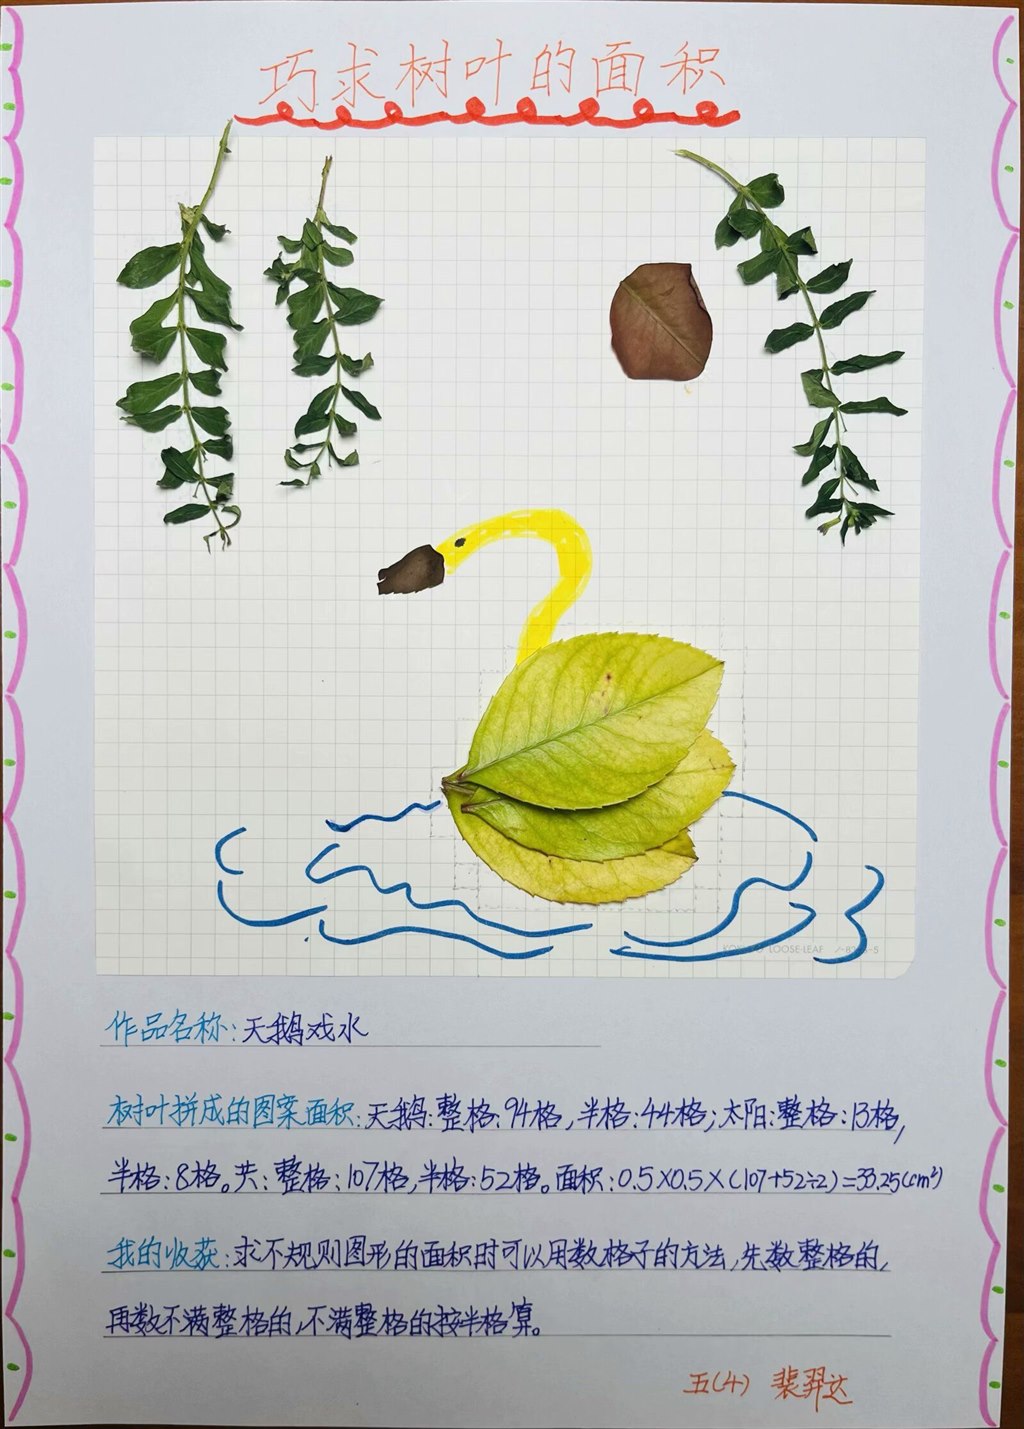 巧求树叶的面积
KOKUYO LOOSE-LEAF
作品名称:天鹅戏水
树叶拼成的图案面积:天鹅:整格:94格,半格:44格;太阳:整格:13格,
半格:8格。共:整格:107格,半格:52格。面积:0.5×0.5×(107+52÷2)=33.25(cm²)
我的收获:求不规则图形的面积时可以用数格子的方法,先数整格的,
再数不满整格的,不满整格的按半格算。
五(4) 裴羿达